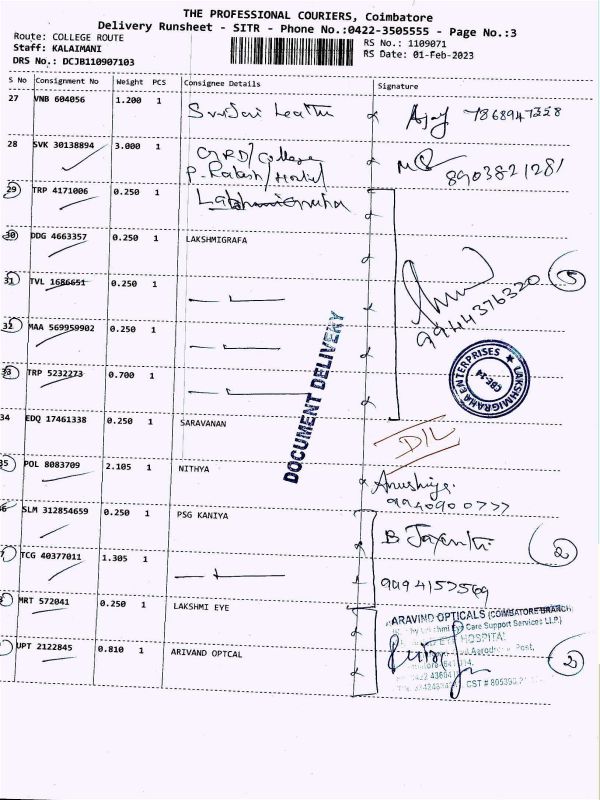 THE PROFESSIONAL COURIERS, Coimbatore
Delivery Runsheet - SITR - Phone No.:0422-3505555 - Page No.:3
Route: COLLEGE ROUTE
Staff: KALAIMANI
DRS No.: DCJB110907103
RS No.: 1109071
RS Date: 01-Feb-2023
S No Consignment No Weight PCS Consignee Details Signature
27 VNB 604056 1.200 1
28 SVK 30138894 3.000 1 GRD/College
8903821281
29 TRP 4171006 0.250 1
30 DDG 4663357 0.250 1 LAKSHMIGRAFA
5
9944376320
31 TVL 1686651 0.250 1
32 MAA 569959902 0.250 1
33 TRP 5232273 0.700 1
LAKSHMIGRAHA ENTERPRISES
CBE-14
DOCUMENT DELIVERY
34 EDQ 17461338 0.250 1 SARAVANAN
D/L
35 POL 8083709 2.105 1 NITHYA
Anushiya.
SLM 312854659 0.250 1 PSG KANIYA
B Jayanthi
2
TCG 40377011 1.305 1
9994157569
MRT 572041 0.250 1 LAKSHMI EYE
ARAVIND OPTICALS (COIMBATORE BRANCH)
Eye Care Support Services LLP)
HOSPITAL
Post,
UPT 2122845 0.810 1 ARIVAND OPTCAL
2
CST #